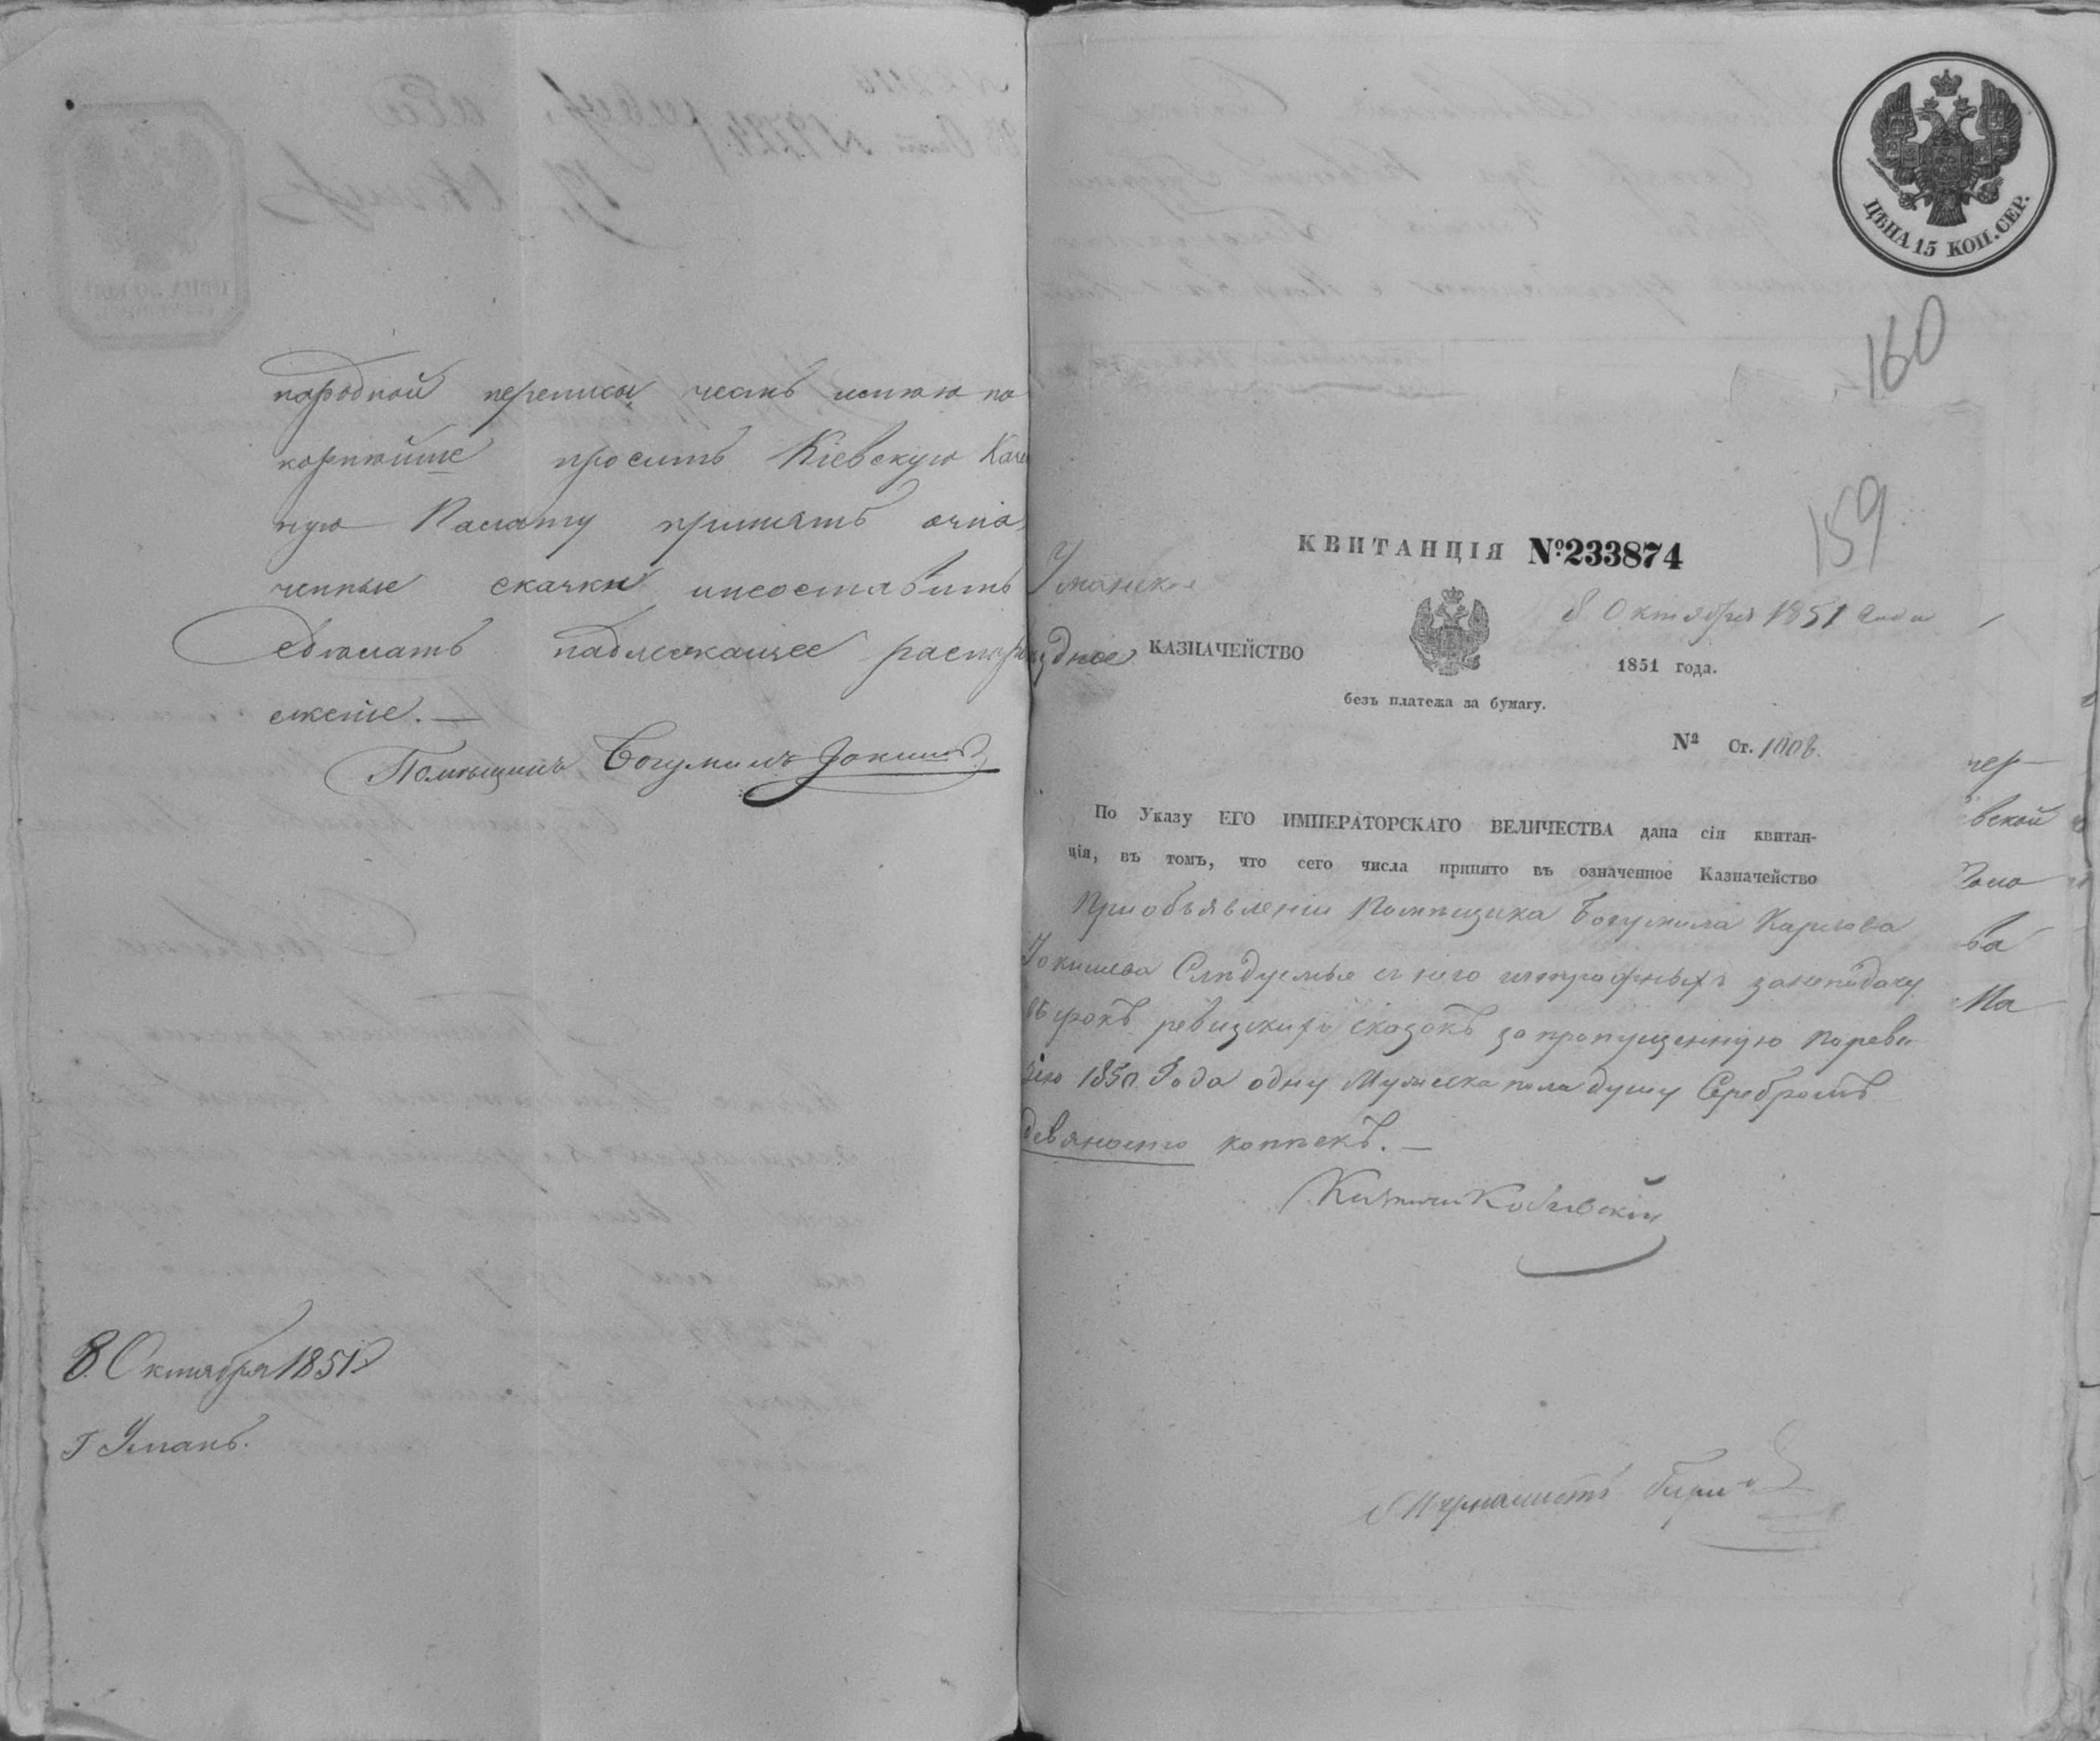 народной переписи честь имею по
корнѣйше просить Кіевскую Казен
ную Палату принять озна
ченные сказки
сдѣлать надлежащее распоря
женіе. —
Помѣщикъ Богумилъ
8. Октября 1851
Г Умань.
ЦѢНА 15 КОП. СЕР.
160
159
КВИТАНЦІЯ №233874
Уманское
8 Октября 1851 года
уѣздное КАЗНАЧЕЙСТВО
1851 года.
безъ платежа за бумагу.
№ Ст. 1008.
По Указу ЕГО ИМПЕРАТОРСКАГО ВЕЛИЧЕСТВА дана сія квитан-
ція, въ томъ, что сего числа принято въ означенное Казначейство
При объявленіи Помѣщика Богумила Карлова
Слѣдуемые съ него штрафныхъ за неподачу
въ срокъ ревизскихъ сказокъ за пропущенную по реви
зіи 1850 Года одну Мужеска пола душу Серебромъ
девяносто копѣекъ. —
Журналистъ
вской
ва
На